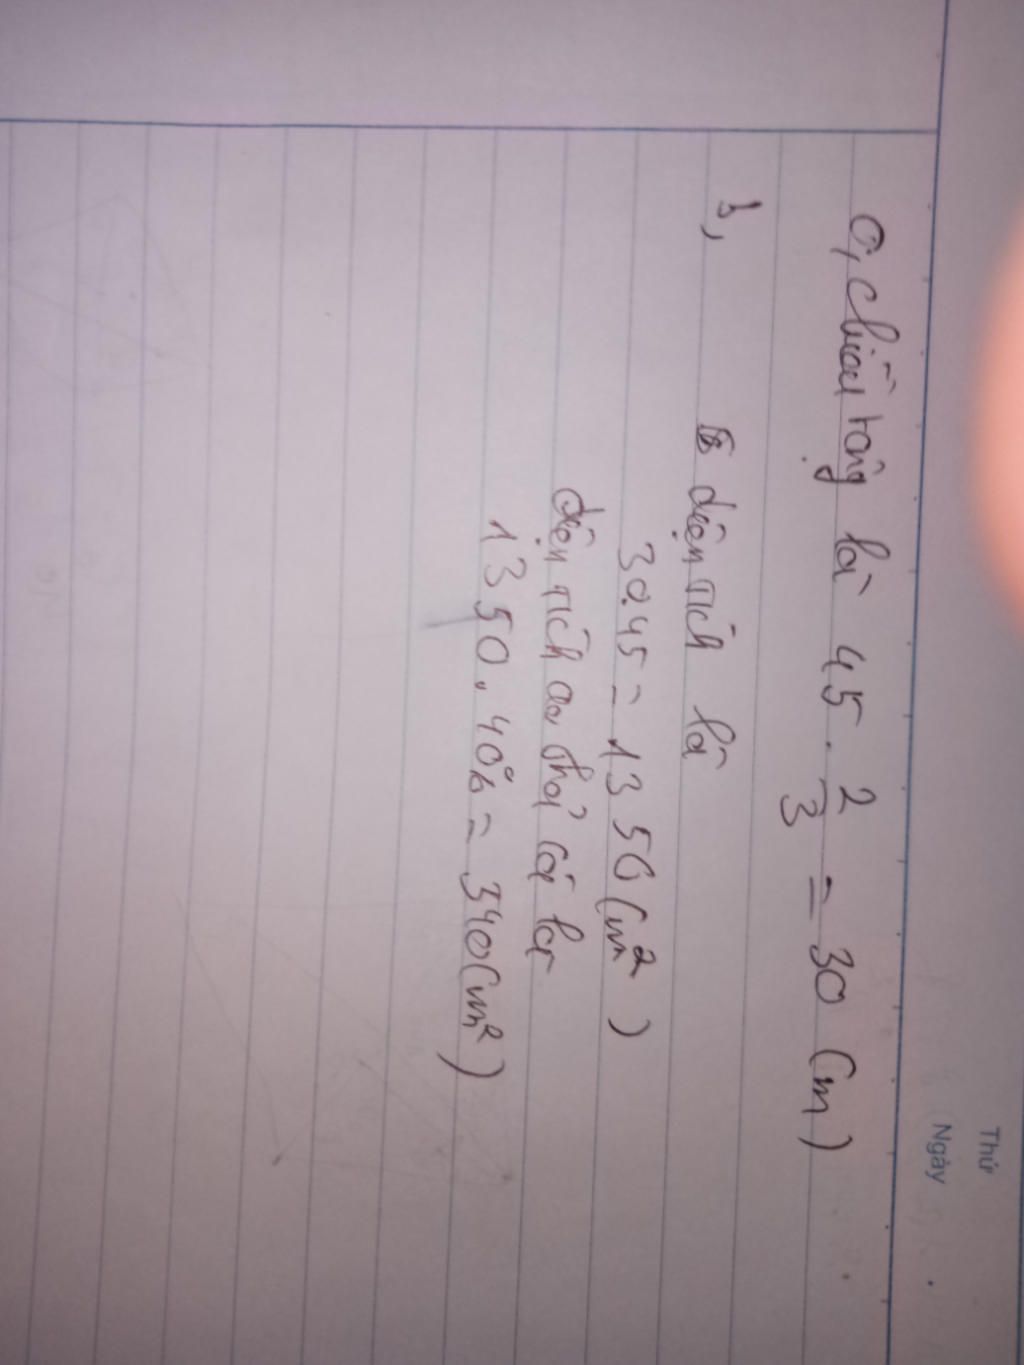 Thứ
Ngày
a, chiều rộng là 45 . 2/3 = 30 (m)
b,
diện tích là
30.45 = 1350 (m²)
diện tích ao thả cá là
1350 . 40% = 340 (m²)